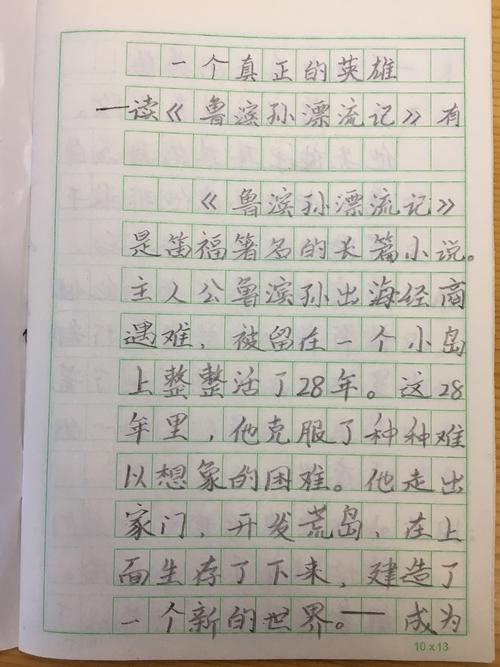 一个真正的英雄
—读《鲁滨孙漂流记》有
《鲁滨孙漂流记》
是笛福著名的长篇小说。
主人公鲁滨孙出海经商
遇难，被留在一个小岛
上整整活了28年。这28
年里，他克服了种种难
以想象的困难。他走出
家门，开发荒岛，在上
面生存了下来，建造了
一个新的世界。— 成为
10×13